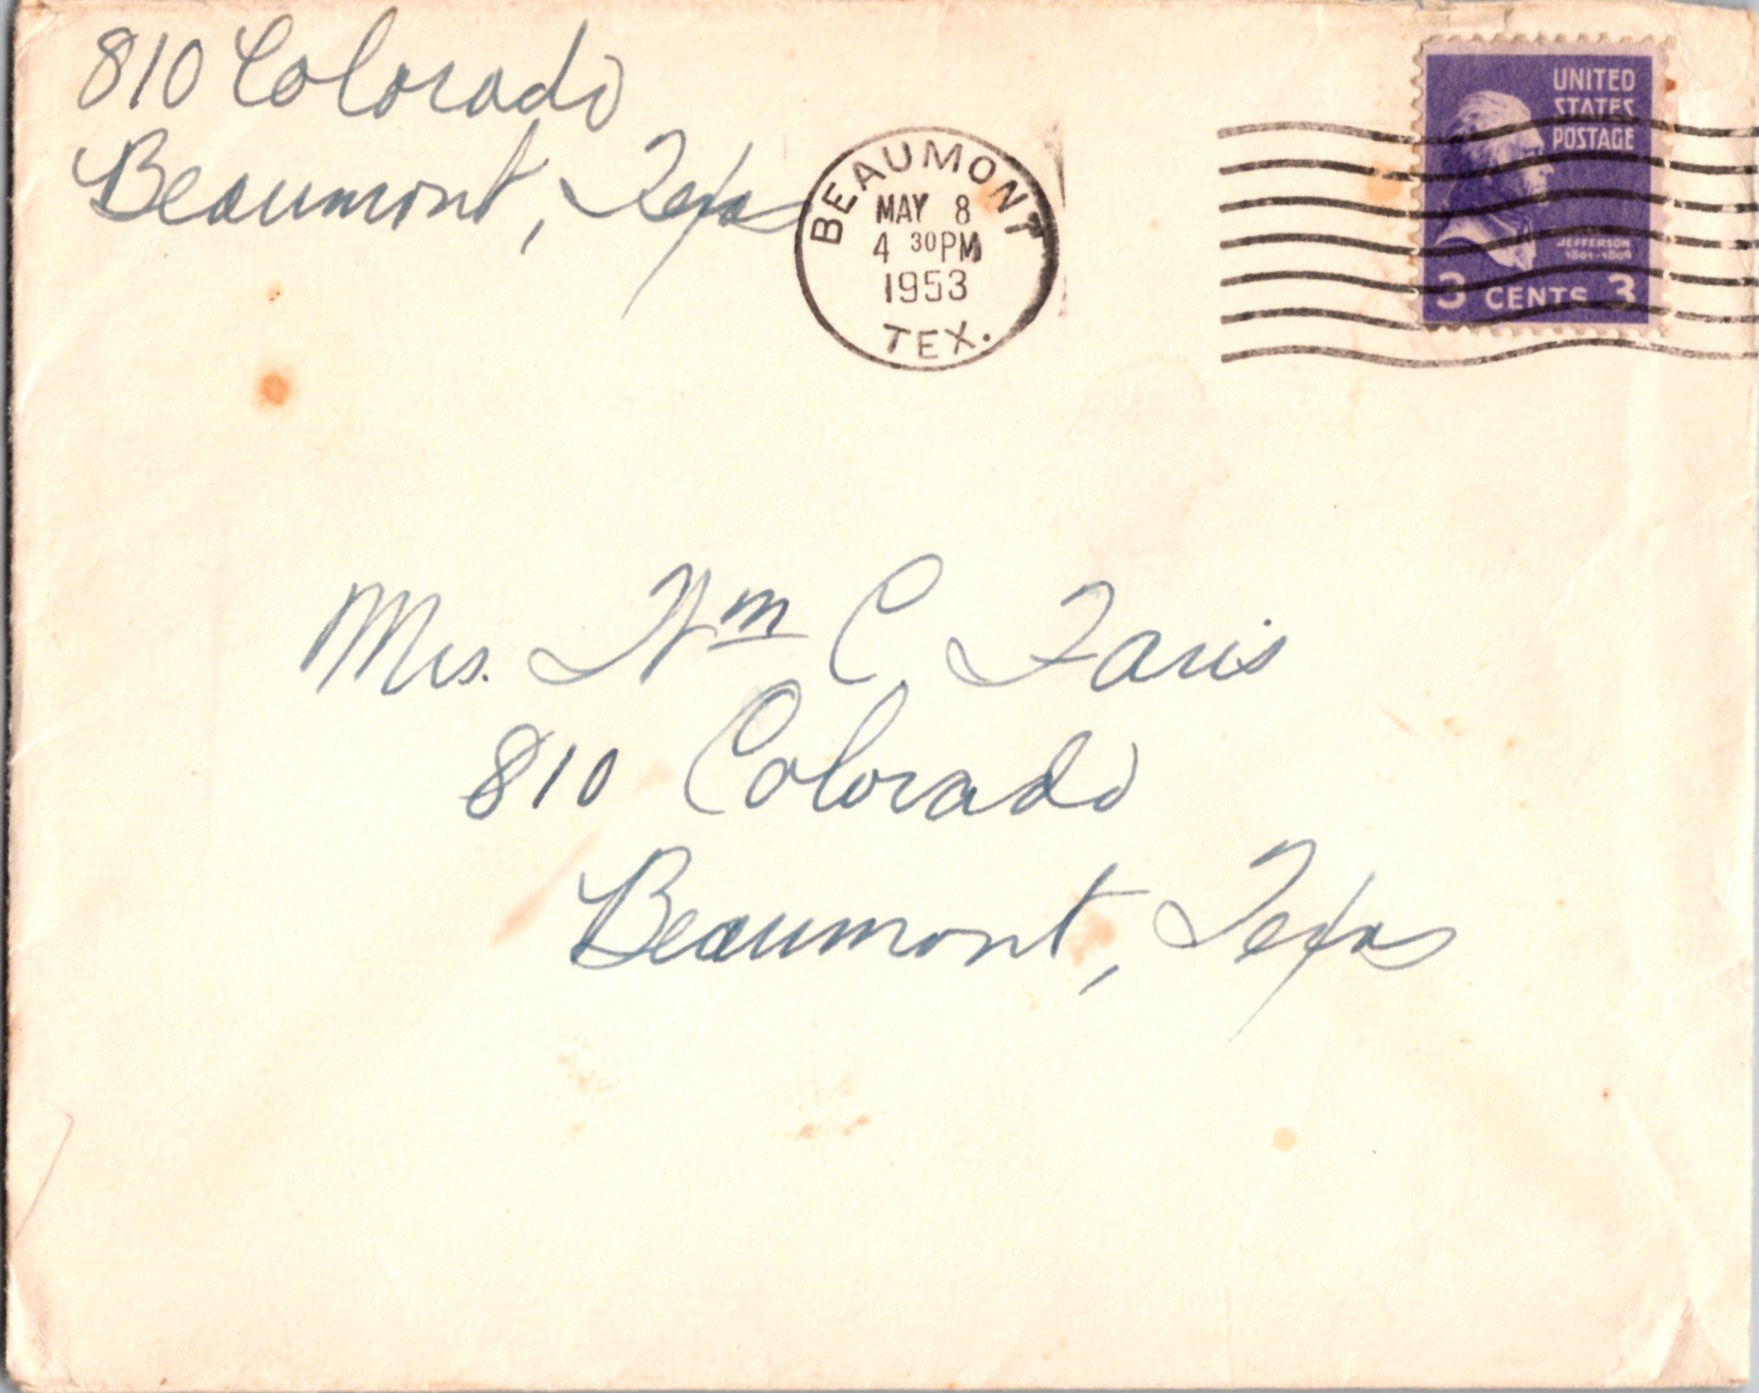 810 Colorado
Beaumont, Texas
BEAUMONT
MAY 8
4 30PM
1953
TEX.
UNITED
STATES
POSTAGE
JEFFERSON
1801-1809
3 CENTS 3
Mrs. Wm C. Faris
810 Colorado
Beaumont, Texas